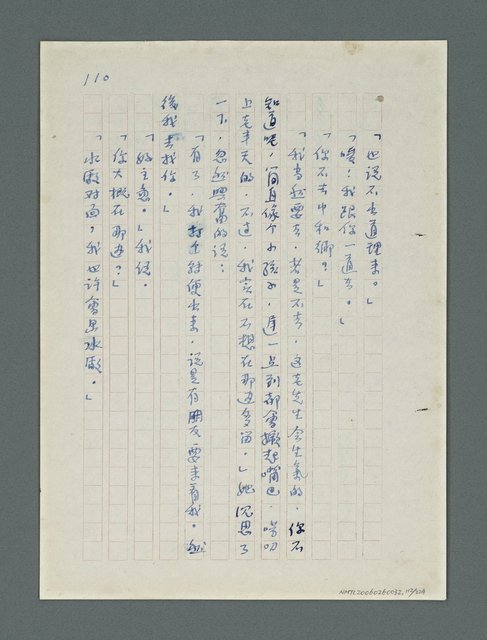 110
「也說不出道理來。」
「噯!我跟你一道去。」
「你不去中和鄉?」
「我當然要去,若是不去,這老先生會生氣的,你不
知道呢,簡直像个小孩子,遲一点到都會撅起嘴巴,嘮叨
上老半天的,不过,我实在不想在那边多留。」她沉思了
一下,忽然興奮的說:
「有了,我趕過去便出來,說是有朋友要來看我,然
後我去找你。」
「好主意。」我說。
「你大概在那边?」
「水廠对面,我也許會畫水廠。」
NMTL20060260032, 112/128